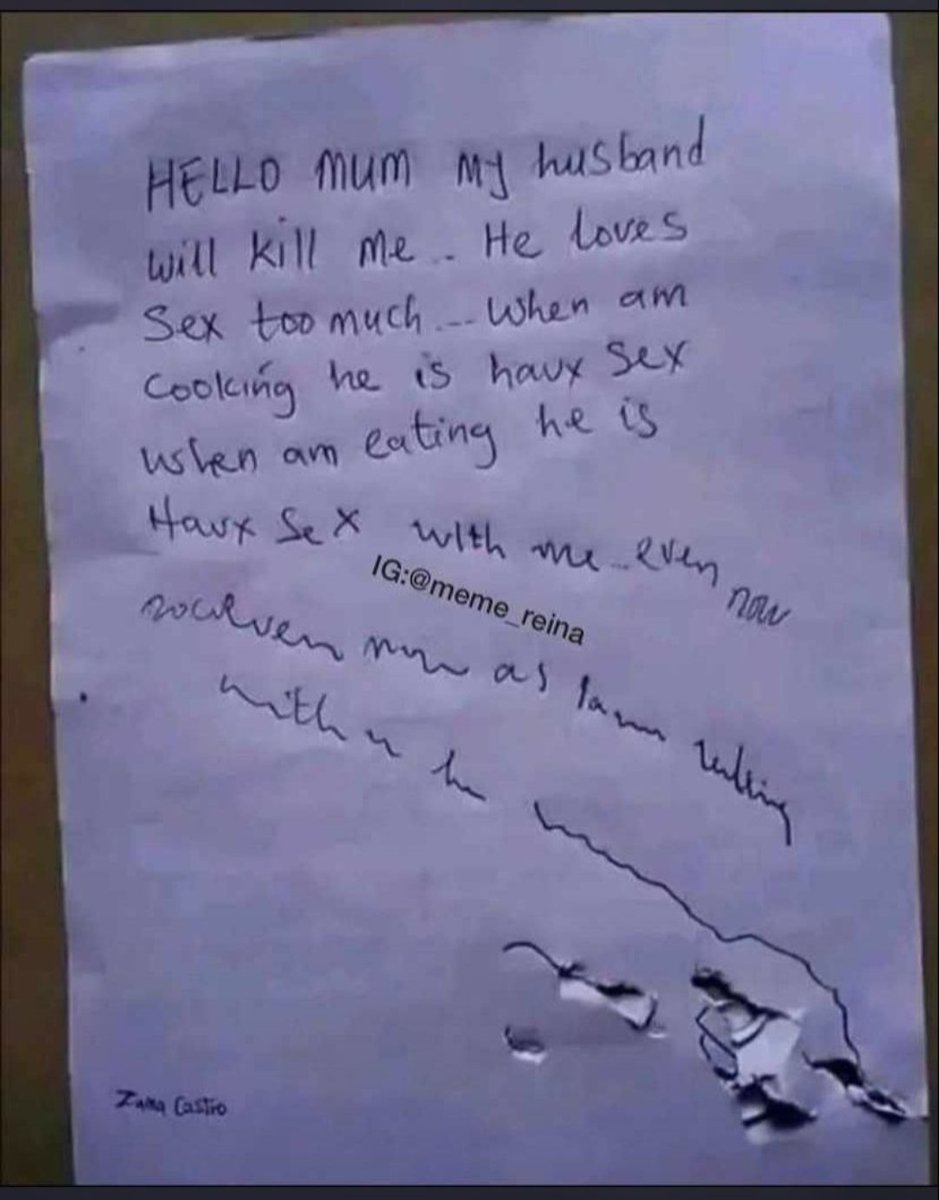 HELLO MUM MY husband
will kill me.. He loves
Sex too much... when am
cooking he is havx Sex
when am eating he is
Havx Sex with me... even now
IG:@meme_reina
as Iam talking
with
Zama Castro